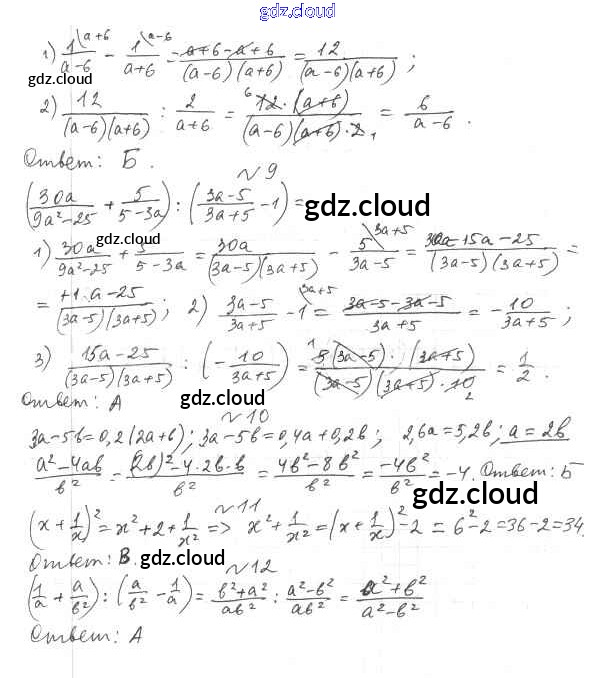 gdz.cloud
1) 1\a+6 / a-6 - 1\a-6 / a+6 = a+6-a+6 / (a-6)(a+6) = 12 / (a-6)(a+6) ;
gdz.cloud gdz.cloud
2) 12 / (a-6)(a+6) : 2 / a+6 = 6 12·(a+6) / (a-6)(a+6)·2 1 = 6 / a-6 .
Ответ: Б.
№ 9
(30a / 9a²-25 + 5 / 5-3a) : (3a-5 / 3a+5 - 1) =
gdz.cloud gdz.cloud
1) 30a / 9a²-25 + 5 / 5-3a = 30a / (3a-5)(3a+5) - 5\3a+5 / 3a-5 = 30a-15a-25 / (3a-5)(3a+5) =
= a-25 / (3a-5)(3a+5) ; 2) 3a-5 / 3a+5 - 1\3a+5 = 3a-5-3a-5 / 3a+5 = - 10 / 3a+5 ;
3) 15a-25 / (3a-5)(3a+5) : (- 10 / 3a+5) = 1 5(3a-5)·(3a+5) / (3a-5)(3a+5)·10 2 = 1 / 2 .
Ответ: А
gdz.cloud
№ 10
3a-5b=0,2(2a+b); 3a-5b=0,4a+0,2b; 2,6a=5,2b; a=2b
a²-4ab / b² = (2b)²-4·2b·b / b² = 4b²-8b² / b² = -4b² / b² = -4. Ответ: Б
gdz.cloud
№ 11
(x + 1/x)² = x²+2+ 1/x² => x²+ 1/x² = (x + 1/x)²-2 = 6²-2=36-2=34.
Ответ: В.
gdz.cloud
№ 12
(1/a + a/b²) : (a/b² - 1/a) = b²+a² / ab² : a²-b² / ab² = a²+b² / a²-b²
gdz.cloud
Ответ: А